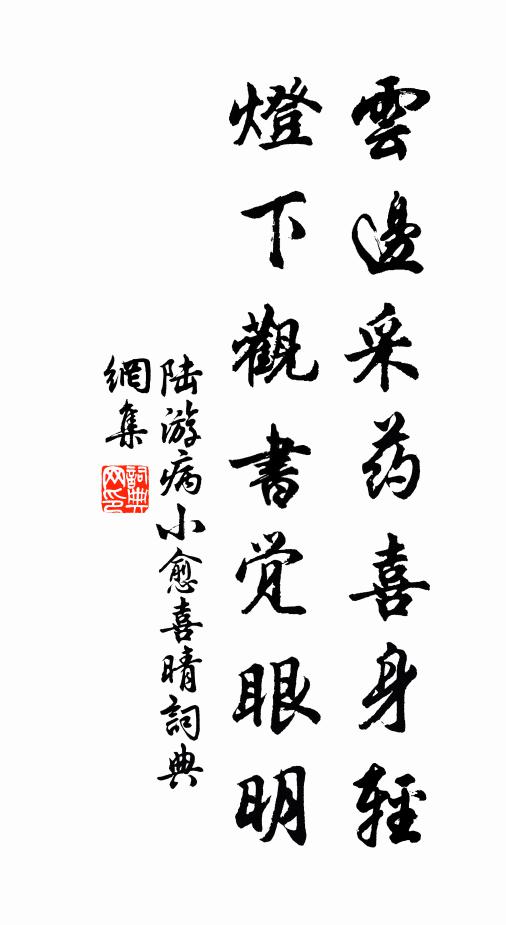 雲邊采药喜身輕
燈下觀書觉眼明
陆游病小愈喜晴詞典
網集
詞典
网印